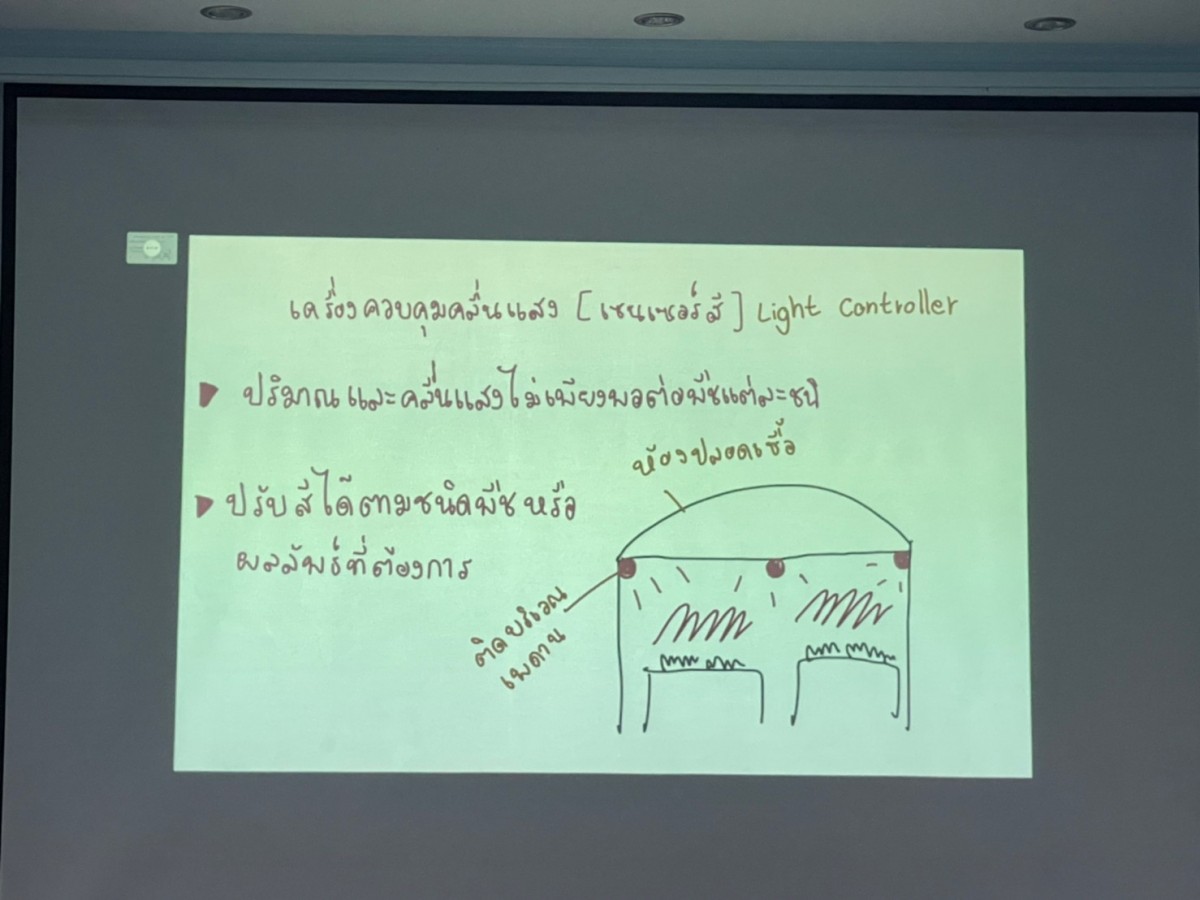 เครื่องควบคุมคลื่นแสง [เซนเซอร์สี] Light Controller
ปริมาณและคลื่นแสงไม่เพียงพอต่อพืชแต่ละชนิ
ห้องปลอดเชื้อ
ปรับสีได้ตามชนิดพืชหรือ
ผลลัพธ์ที่ต้องการ
ติดบริเวณ
เพดาน